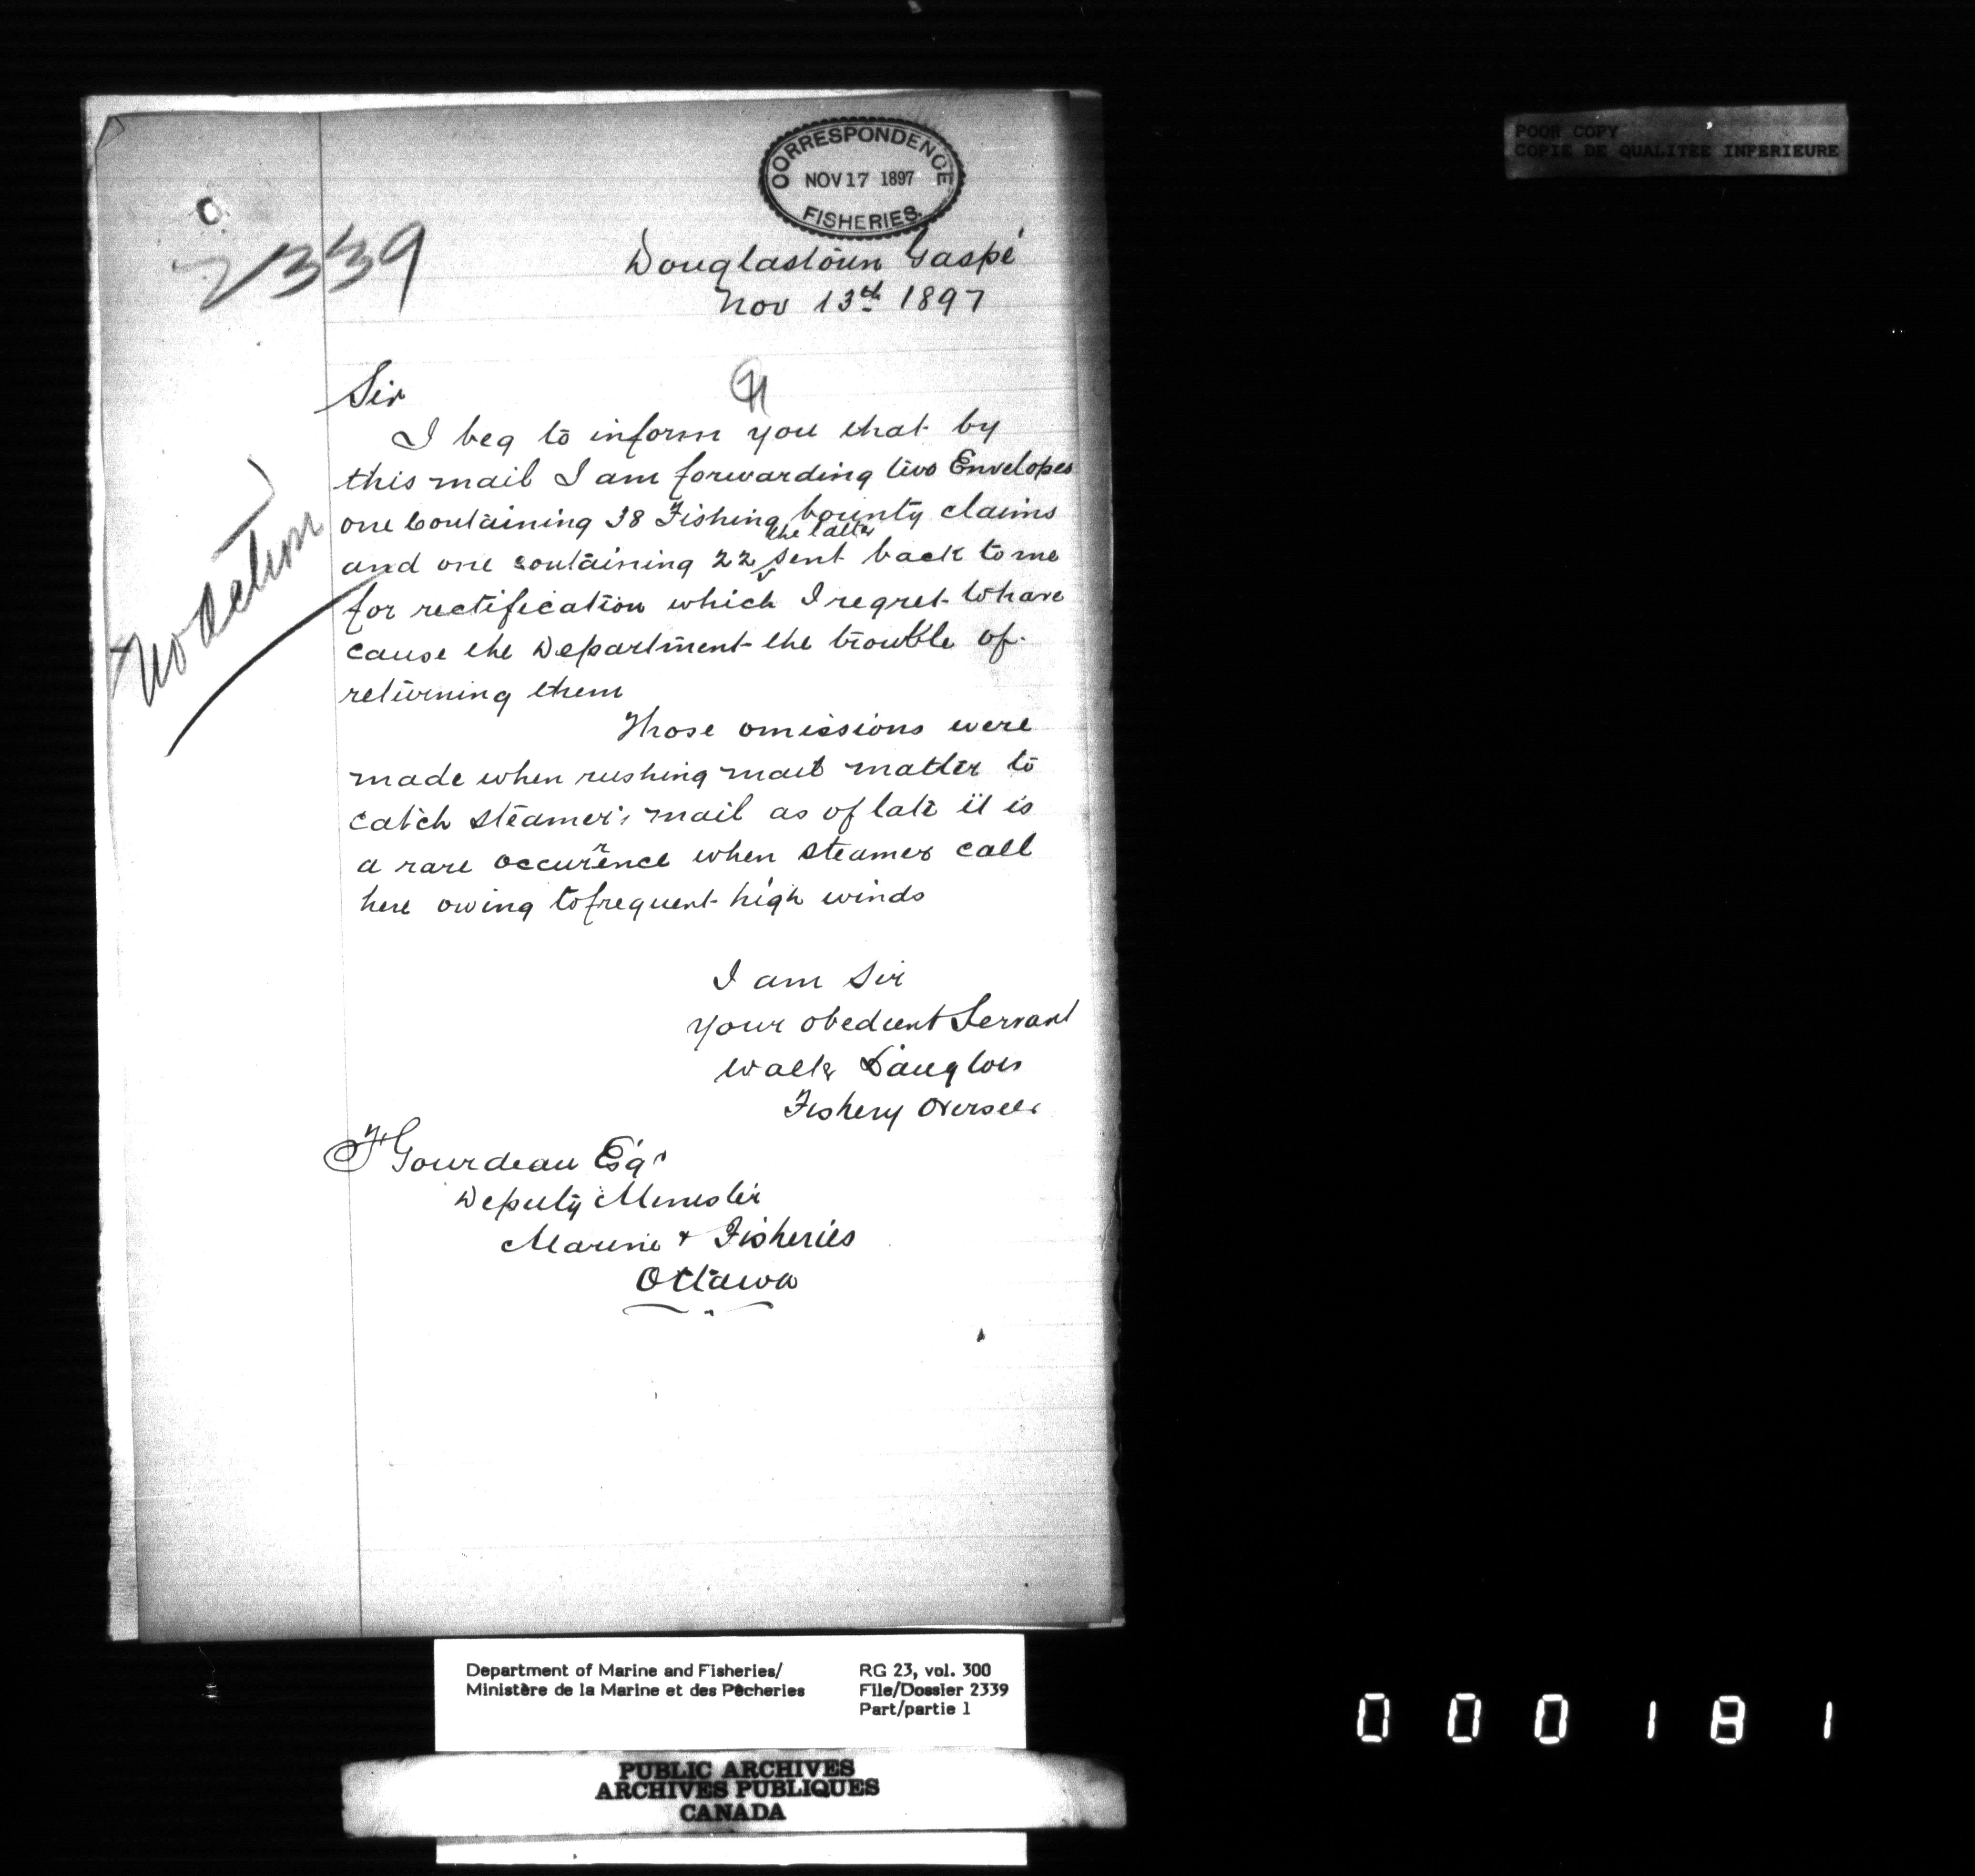 POOR COPY
COPIE DE QUALITEE INFERIEURE
CORRESPONDENCE
NOV 17 1897
FISHERIES.
2339
Douglastown Gaspé
Nov 13th 1897
Sir
I beg to inform you that by
this mail I am forwarding two Envelopes
one containing 38 Fishing bounty claims
and one containing 22 the latter sent back to me
for rectification which I regret to have
cause the Department the trouble of
returning them
Those omissions were
made when rushing mail matter to
catch steamer's mail as of late it is
a rare occurrence when steamer call
here owing to frequent high winds
No action
I am Sir
Your obedient Servant
Fishery Overseer
F Gourdeau Esqr
Deputy Minister
Marine & Fisheries
Ottawa
Department of Marine and Fisheries/
Ministère de la Marine et des Pêcheries
RG 23, vol. 300
File/Dossier 2339
Part/partie 1
PUBLIC ARCHIVES
ARCHIVES PUBLIQUES
CANADA
000181